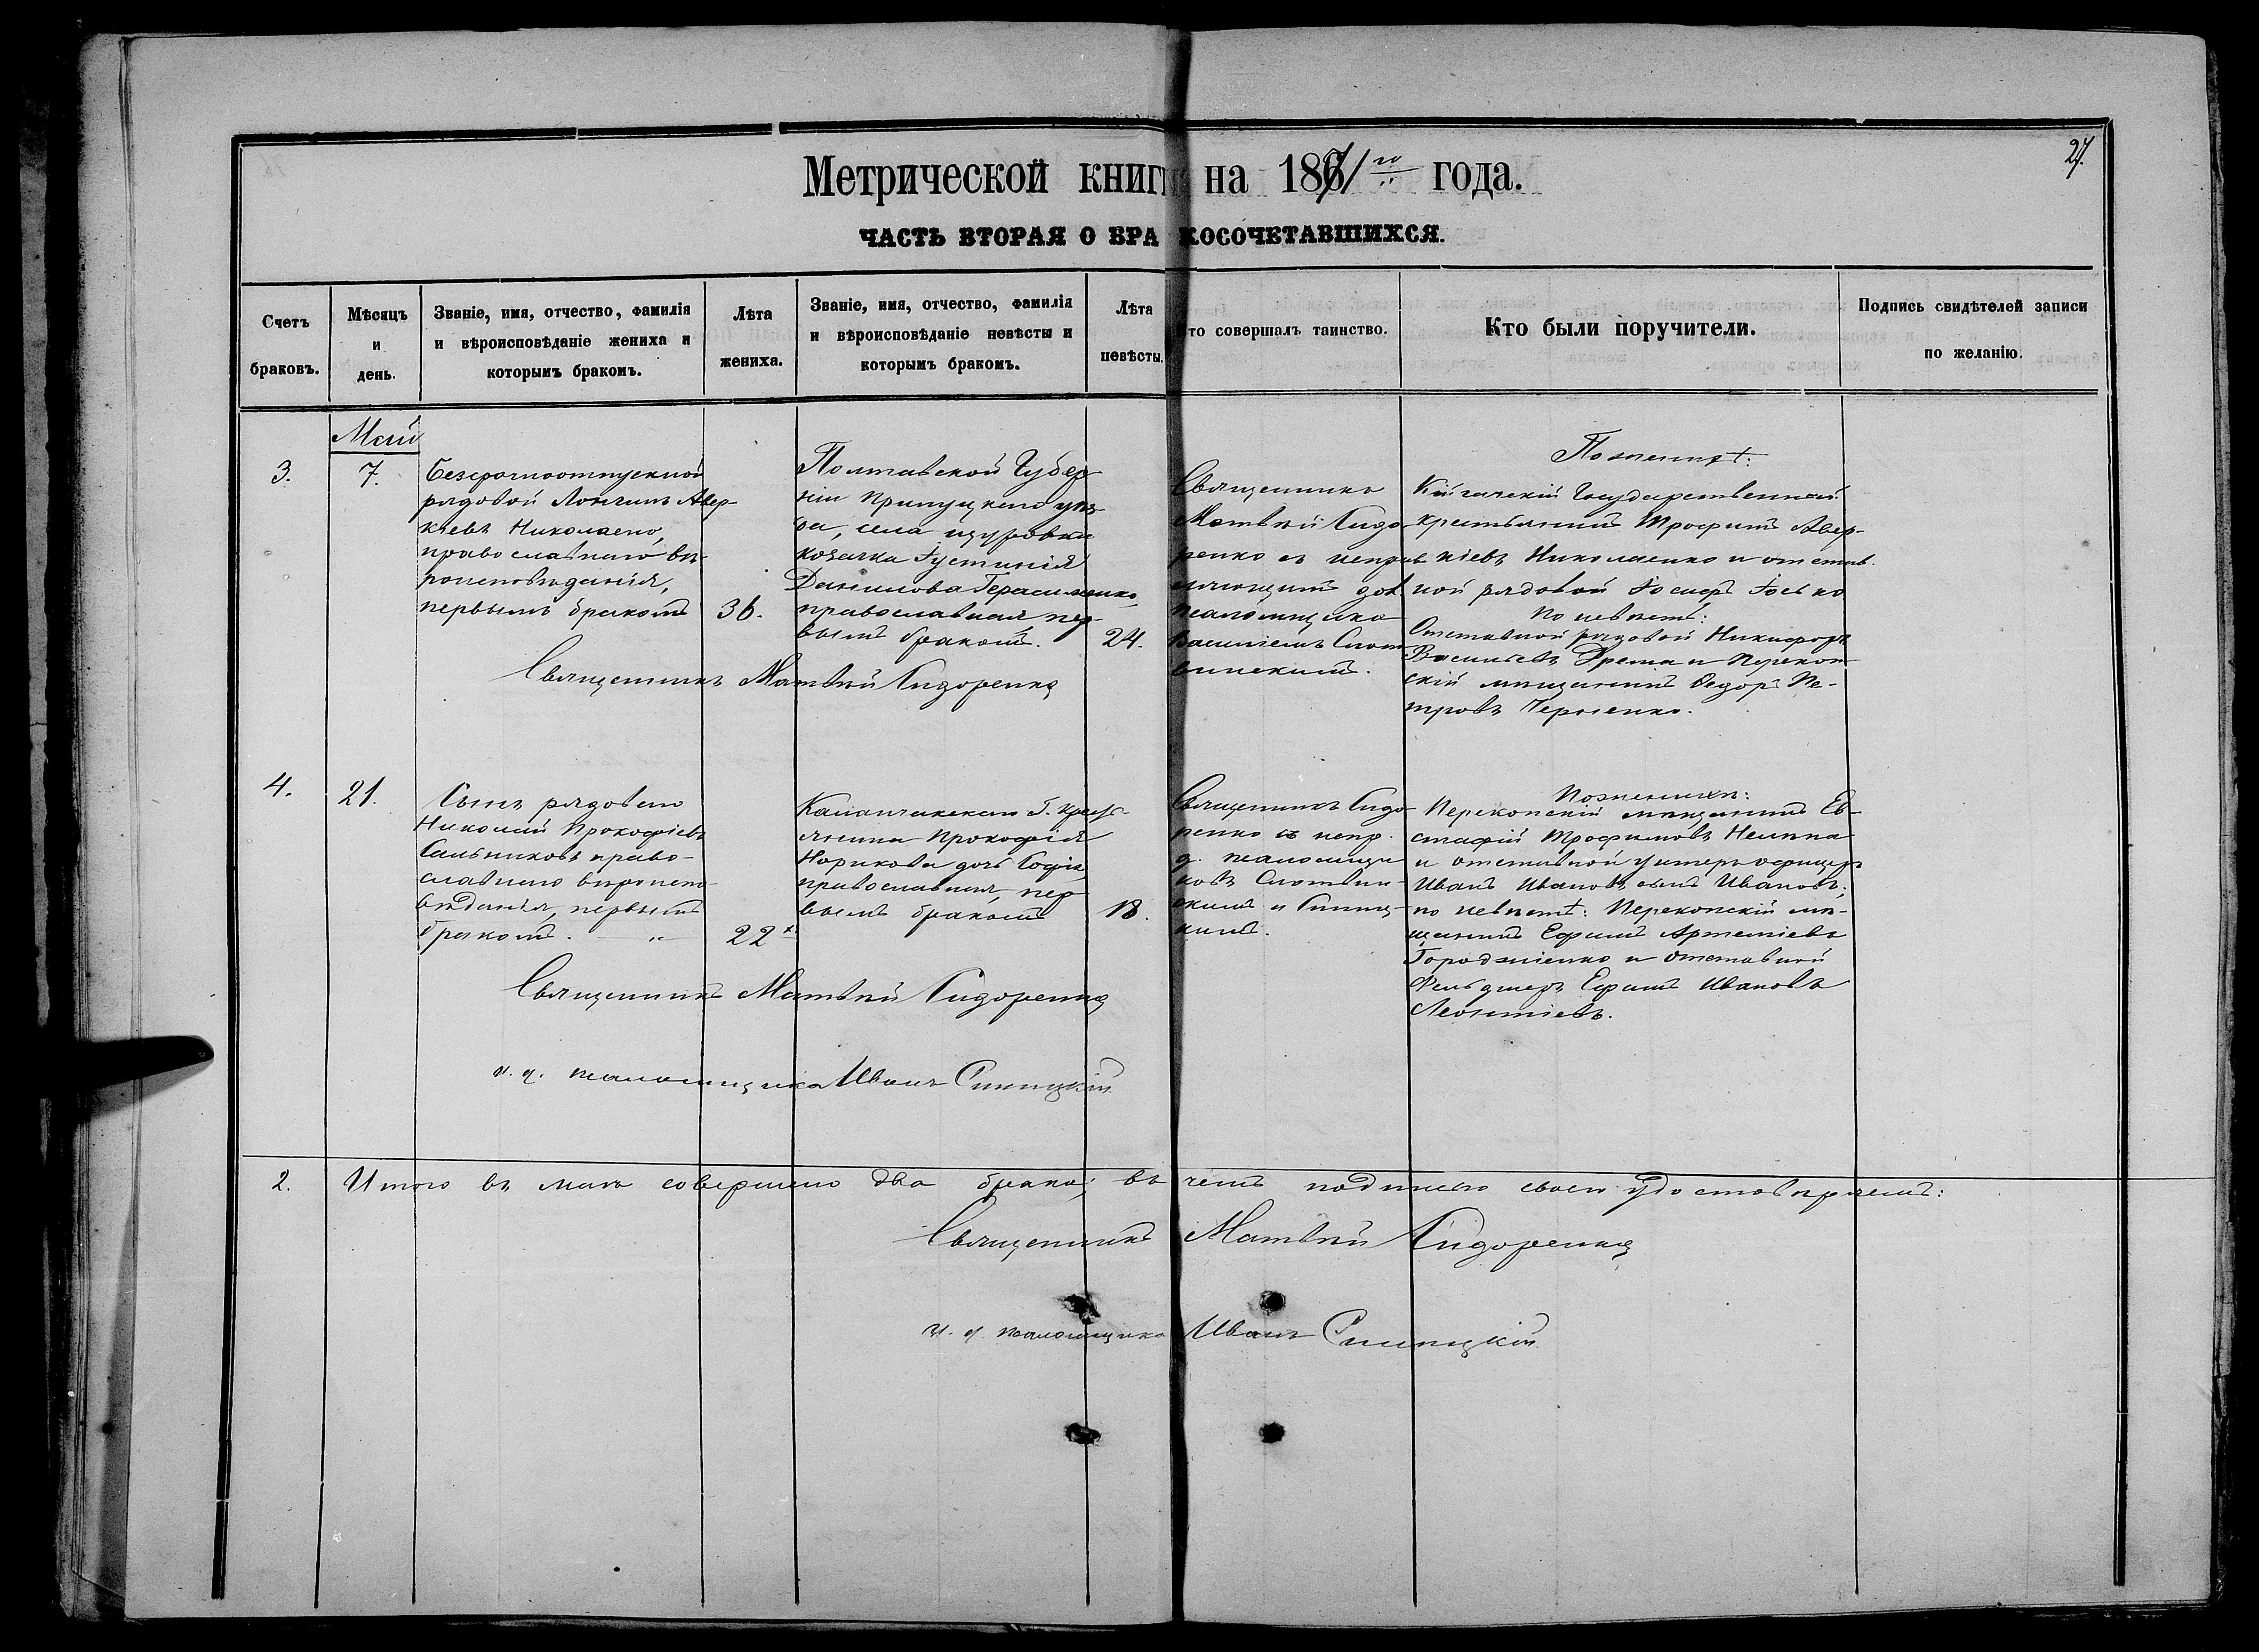 27.
Метрической книги на 1871 го года.
ЧАСТЬ ВТОРАЯ О БРАКОСОЧЕТАВШИХСЯ.
Счетъ браковъ.
Мѣсяцъ и день.
Званіе, имя, отчество, фамилія
и вѣроисповѣданіе жениха и
которымъ бракомъ.
Лѣта жениха.
Званіе, имя, отчество, фамилія
и вѣроисповѣданіе невѣсты и
которымъ бракомъ.
Лѣта невѣсты.
то совершалъ таинство.
Кто были поручители.
Подпись свидѣтелей записи
по желанію.
Май
3.
7.
Безсрочноотпускной
рядовой Логгинъ Авер-
кіевъ Николаено,
православнаго вѣ-
роисповѣданія,
первымъ бракомъ
36.
Полтавской Губер-
ніи Прилуцкаго уѣз-
да, села
козачка Іустинія
Данилова Герасименко,
православная, пер-
вымъ бракомъ.
24.
Священникъ
Матвѣй Сидо-
ренко съ исправ-
ляющимъ дол.
псаломщика
Василіемъ Слот
винскимъ.
По женихѣ:
Государственный
крестьянинъ Трофимъ Авер-
кіевъ Николаенко и отстав.
ной рядовой
по невѣстѣ:
Отставной рядовой Никифоръ
Васильевъ Дрема и Перекоп
скій мѣщанинъ Ѳедоръ Пе-
тровъ
Священникъ Матвѣй Сидоренко
4.
21.
Сынъ рядоваго
Николай Прокофіевъ
Сальниковъ право-
славнаго вѣроиспо-
вѣданія, первымъ
бракомъ. — " —
22
Каланчакскаго Г. крест-
янина Прокофія
Норикова дочь Софія,
православная, пер
вымъ бракомъ
18.
Священникъ Сидо-
ренко съ испр.
д. псаломщи
ковъ Слотвин-
скимъ и Синиц-
кимъ.
По женихѣ:
Перекопскій мѣщанинъ Ев-
стафій Трофимовъ
и отставной унтеръ-офицеръ
Иванъ Ивановъ сынъ Ивановъ;
по невѣстѣ: Перекопскій мѣ-
щанинъ Ефимъ Артеміевъ
и отставной
Фельдшеръ Ефимъ Ивановъ
Леонтіевъ.
Священникъ Матвѣй Сидоренко
и. д. псаломщика Иванъ Синицкій
2. Итого въ маѣ совершено два брака; въ чемъ подписью своею удостовѣряемъ:
Священникъ Матвѣй Сидоренко
и. д. псаломщика Иванъ Синицкій